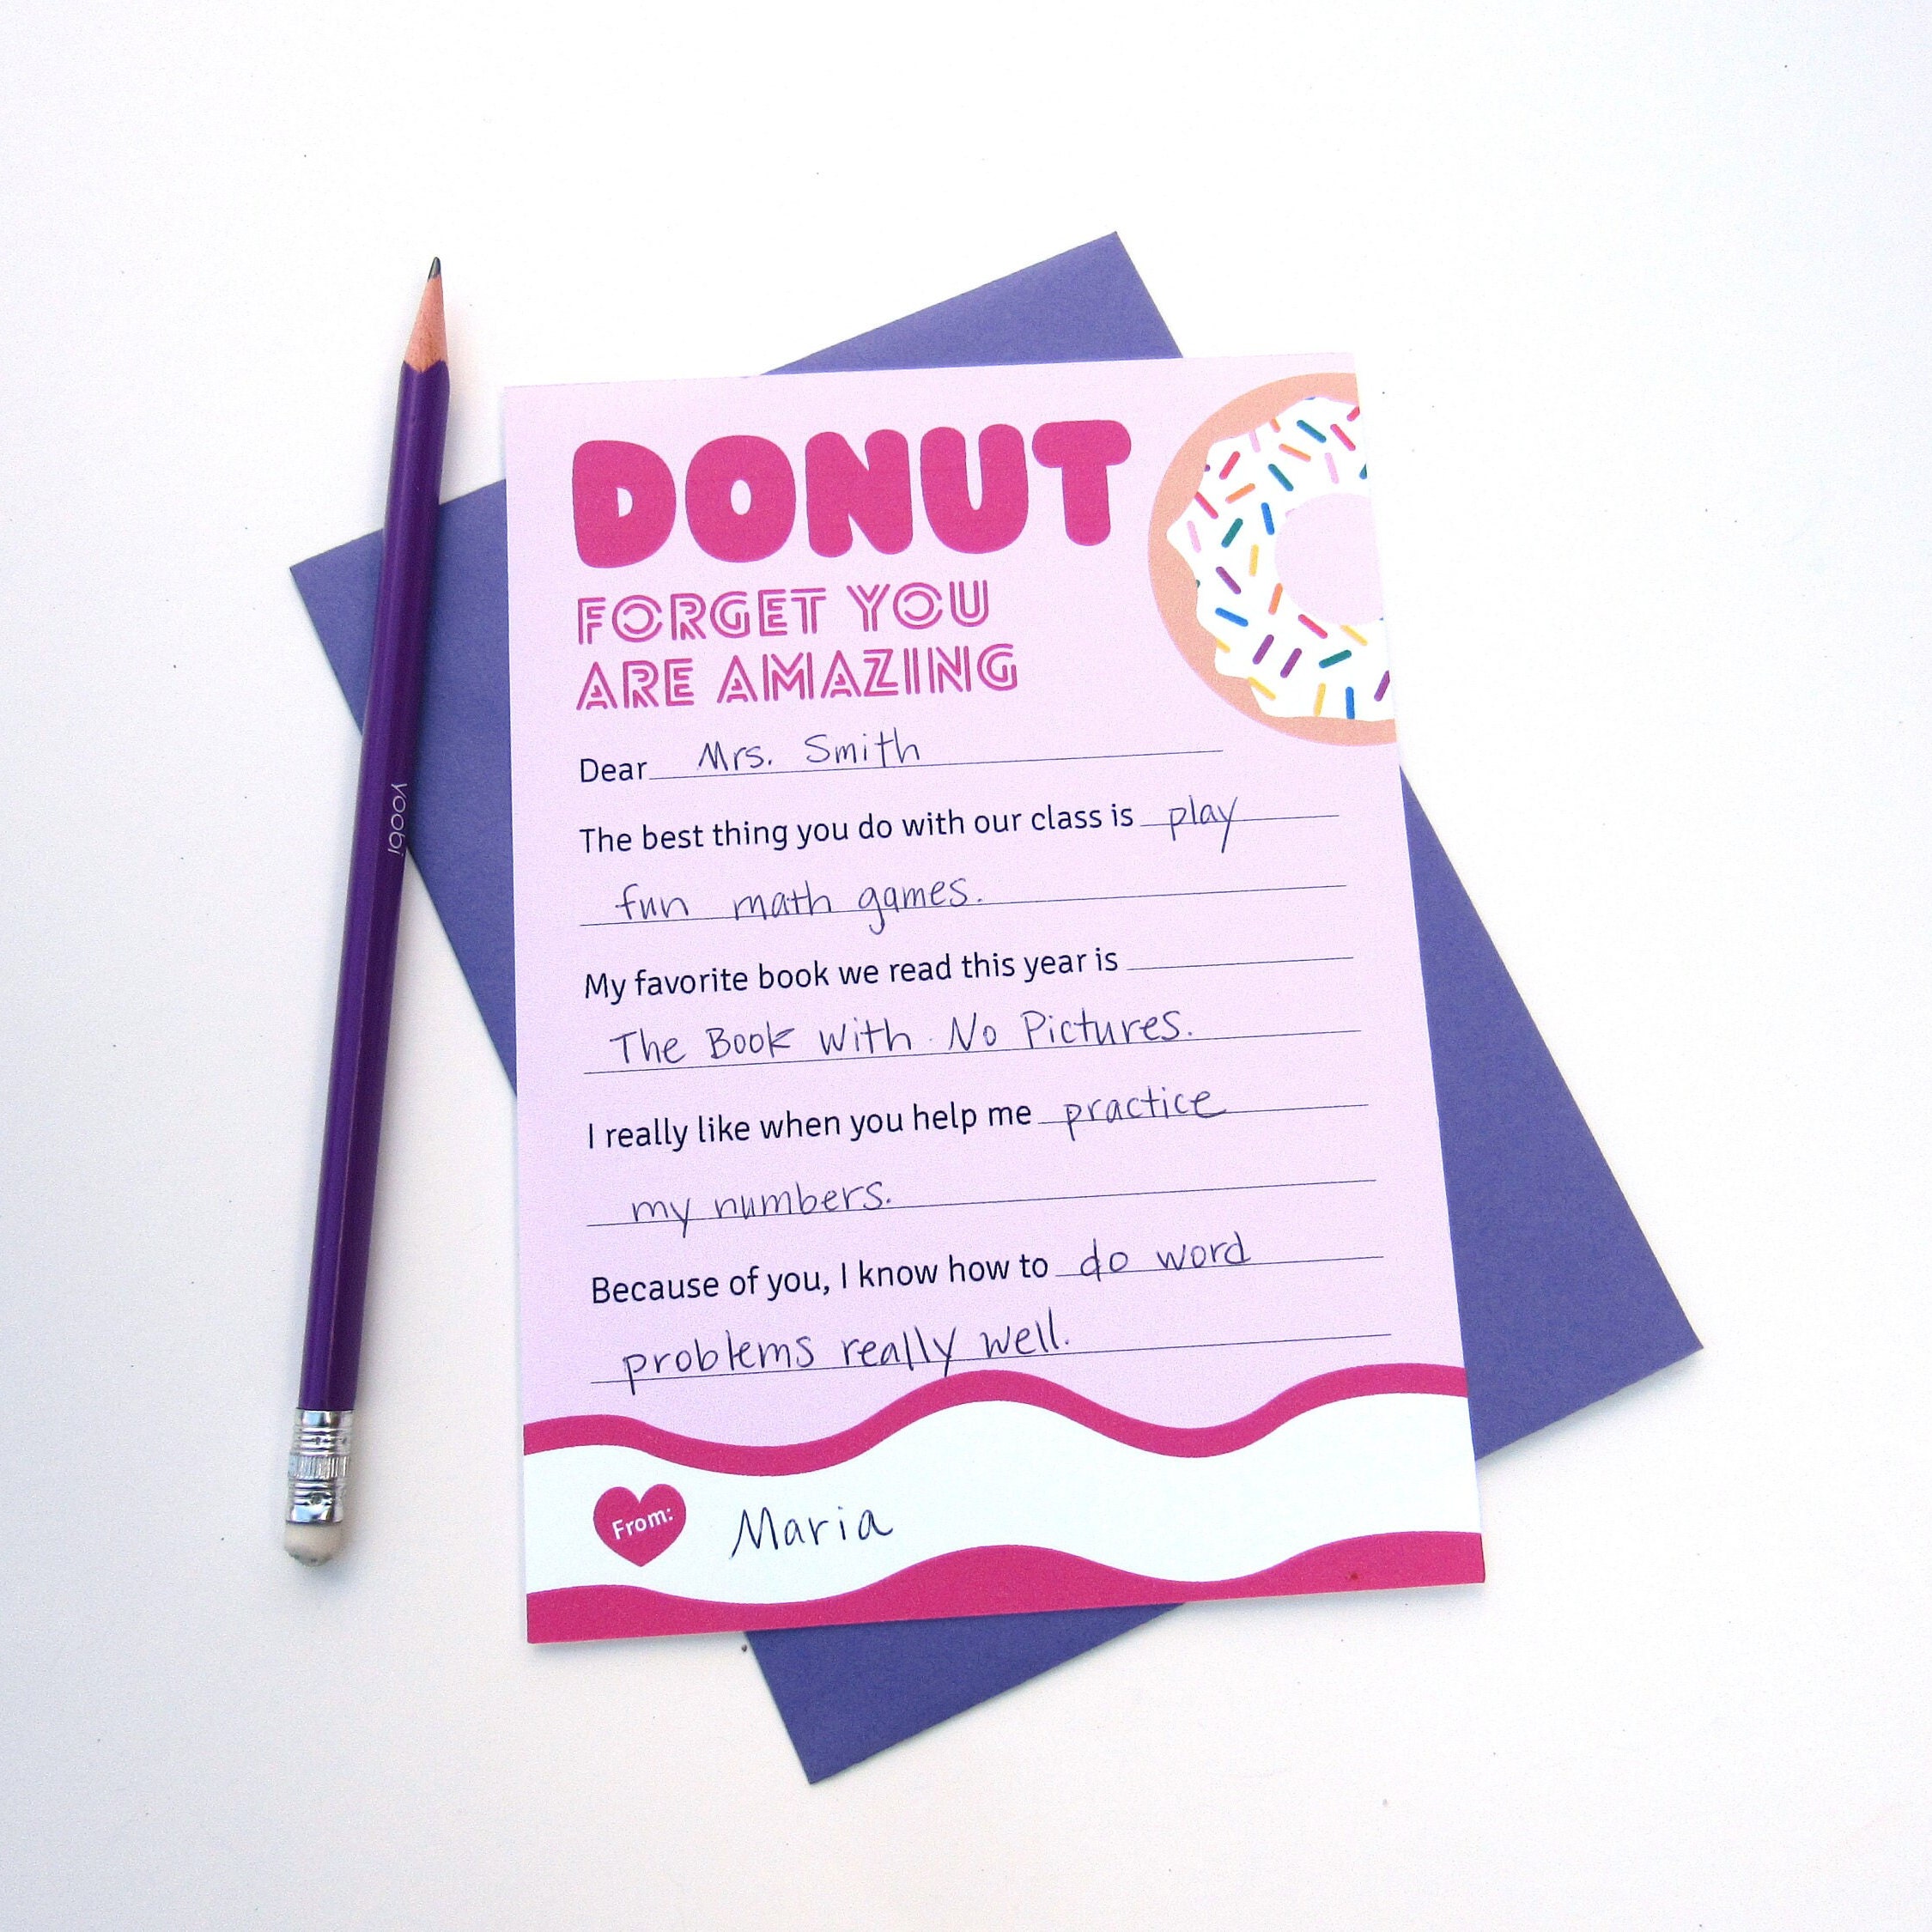 DONUT
FORGET YOU
ARE AMAZING
Dear Mrs. Smith
The best thing you do with our class is play
fun math games.
My favorite book we read this year is
The Book With No Pictures.
I really like when you help me practice
my numbers.
Because of you, I know how to do word
problems really well.
From: Maria
yoobi